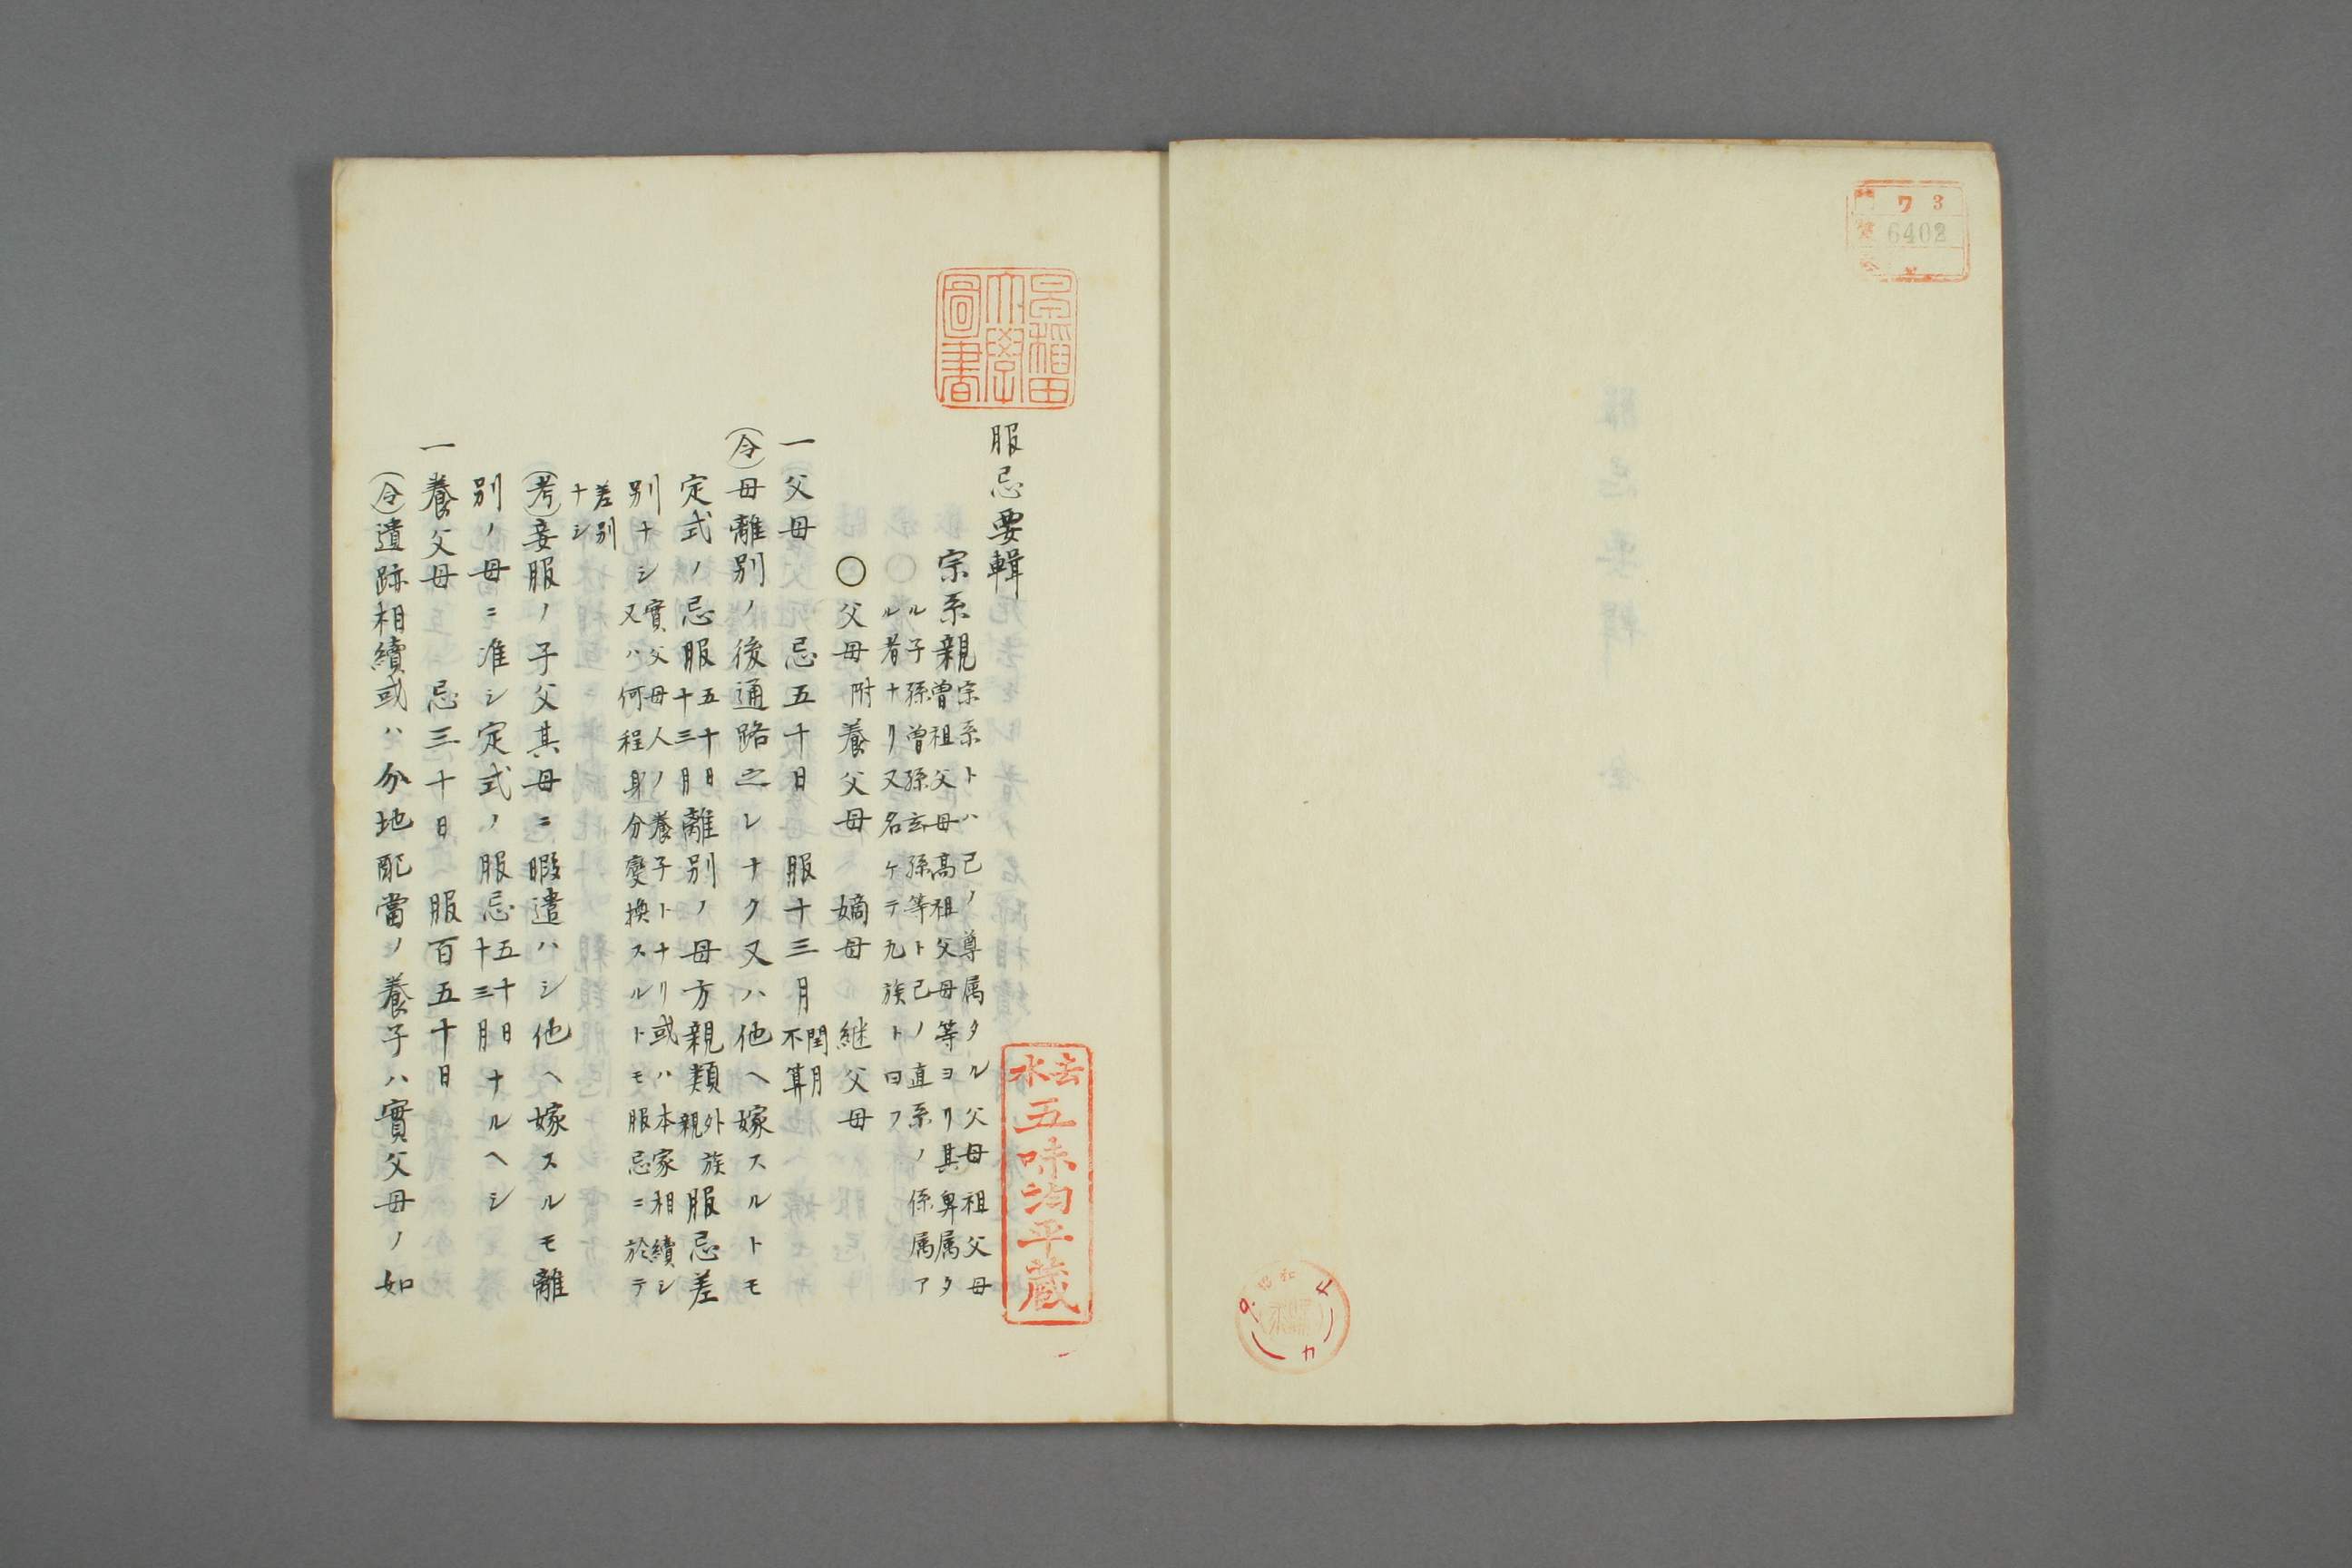 ワ3
6402
早稲田大學圖書
服忌要輯
宗系親
宗系トハ己ノ尊属タル父母祖父母
曽祖父母髙祖父母等ヨリ其卑属タ
ル子孫曽孫玄孫等ト己ノ直系ノ係属ア
ル者ナリ又名ケテ九族ト曰フ
〇父母附養父母 嫡母 継父母
一父母 忌五十日 服十三月閏月不算
(令)母離別ノ後通路之レナク又ハ他ヘ嫁スルトモ
定式ノ忌服五十日十三月離別ノ母方親類外族親服忌差
別ナシ又實父母人ノ養子トナリ或ハ本家相續シ
ハ何程身分變換スルトモ服忌ニ於テ
差別ナシ
(考)妾服ノ子父其母ニ暇遣ハシ他ヘ嫁スルモ離
別ノ母ニ准シ定式ノ服忌五十日十三月ナルヘシ
一養父母 忌三十日 服百五十日
(令)遺跡相續或ハ分地配當ノ養子ハ實父母ノ如
玄水
五味均平蔵
昭和